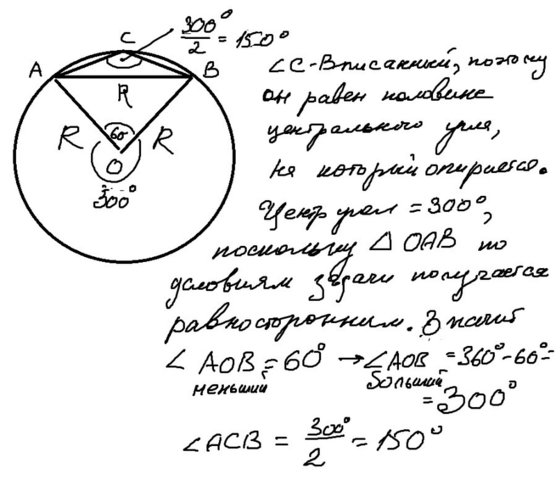 300°/2 = 150°
C
A
B
R
R
R
60°
O
300°
∠C - вписанный, поэтому
он равен половине
центрального угла,
на который опирается.
Центр угол = 300°,
поскольку △ OAB по
условиям задачи получается
равносторонним. Значит
∠ AOB = 60° → ∠AOB = 360° - 60° =
меньший больший
= 300°
∠ACB = 300°/2 = 150°